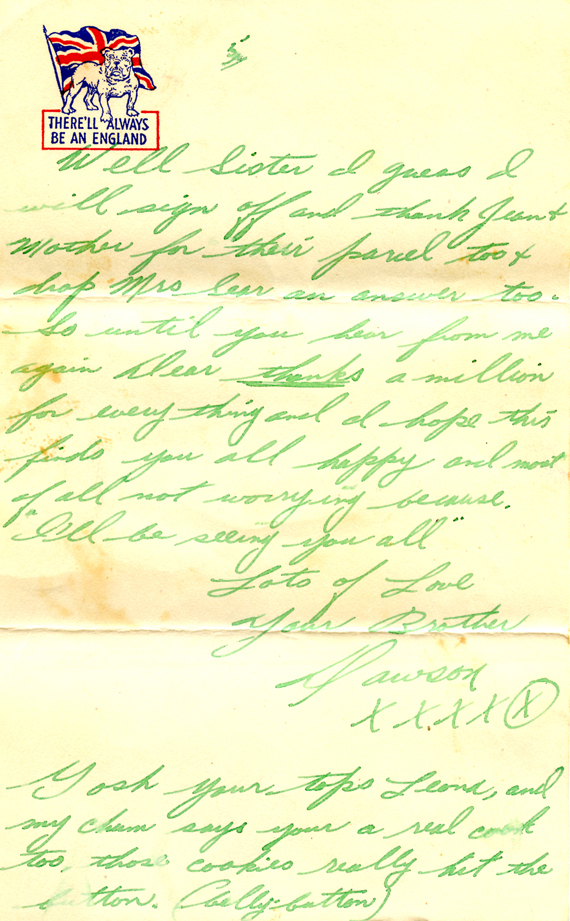 5
THERE'LL ALWAYS
BE AN ENGLAND
Well Sister I guess I
will sign off and thank Jean &
Mother for their parcel too &
drop Mrs an answer too.
So until you hear from me
again Dear thanks a million
for every thing and I hope this
finds you all happy and most
of all not worrying because.
"I'll be seeing you all"
Lots of Love
Your Brother
Dawson
X X X X X
Gosh your tops Leona, and
my chum says your a real cook
too, those cookies really hit the
button. (belly-button)